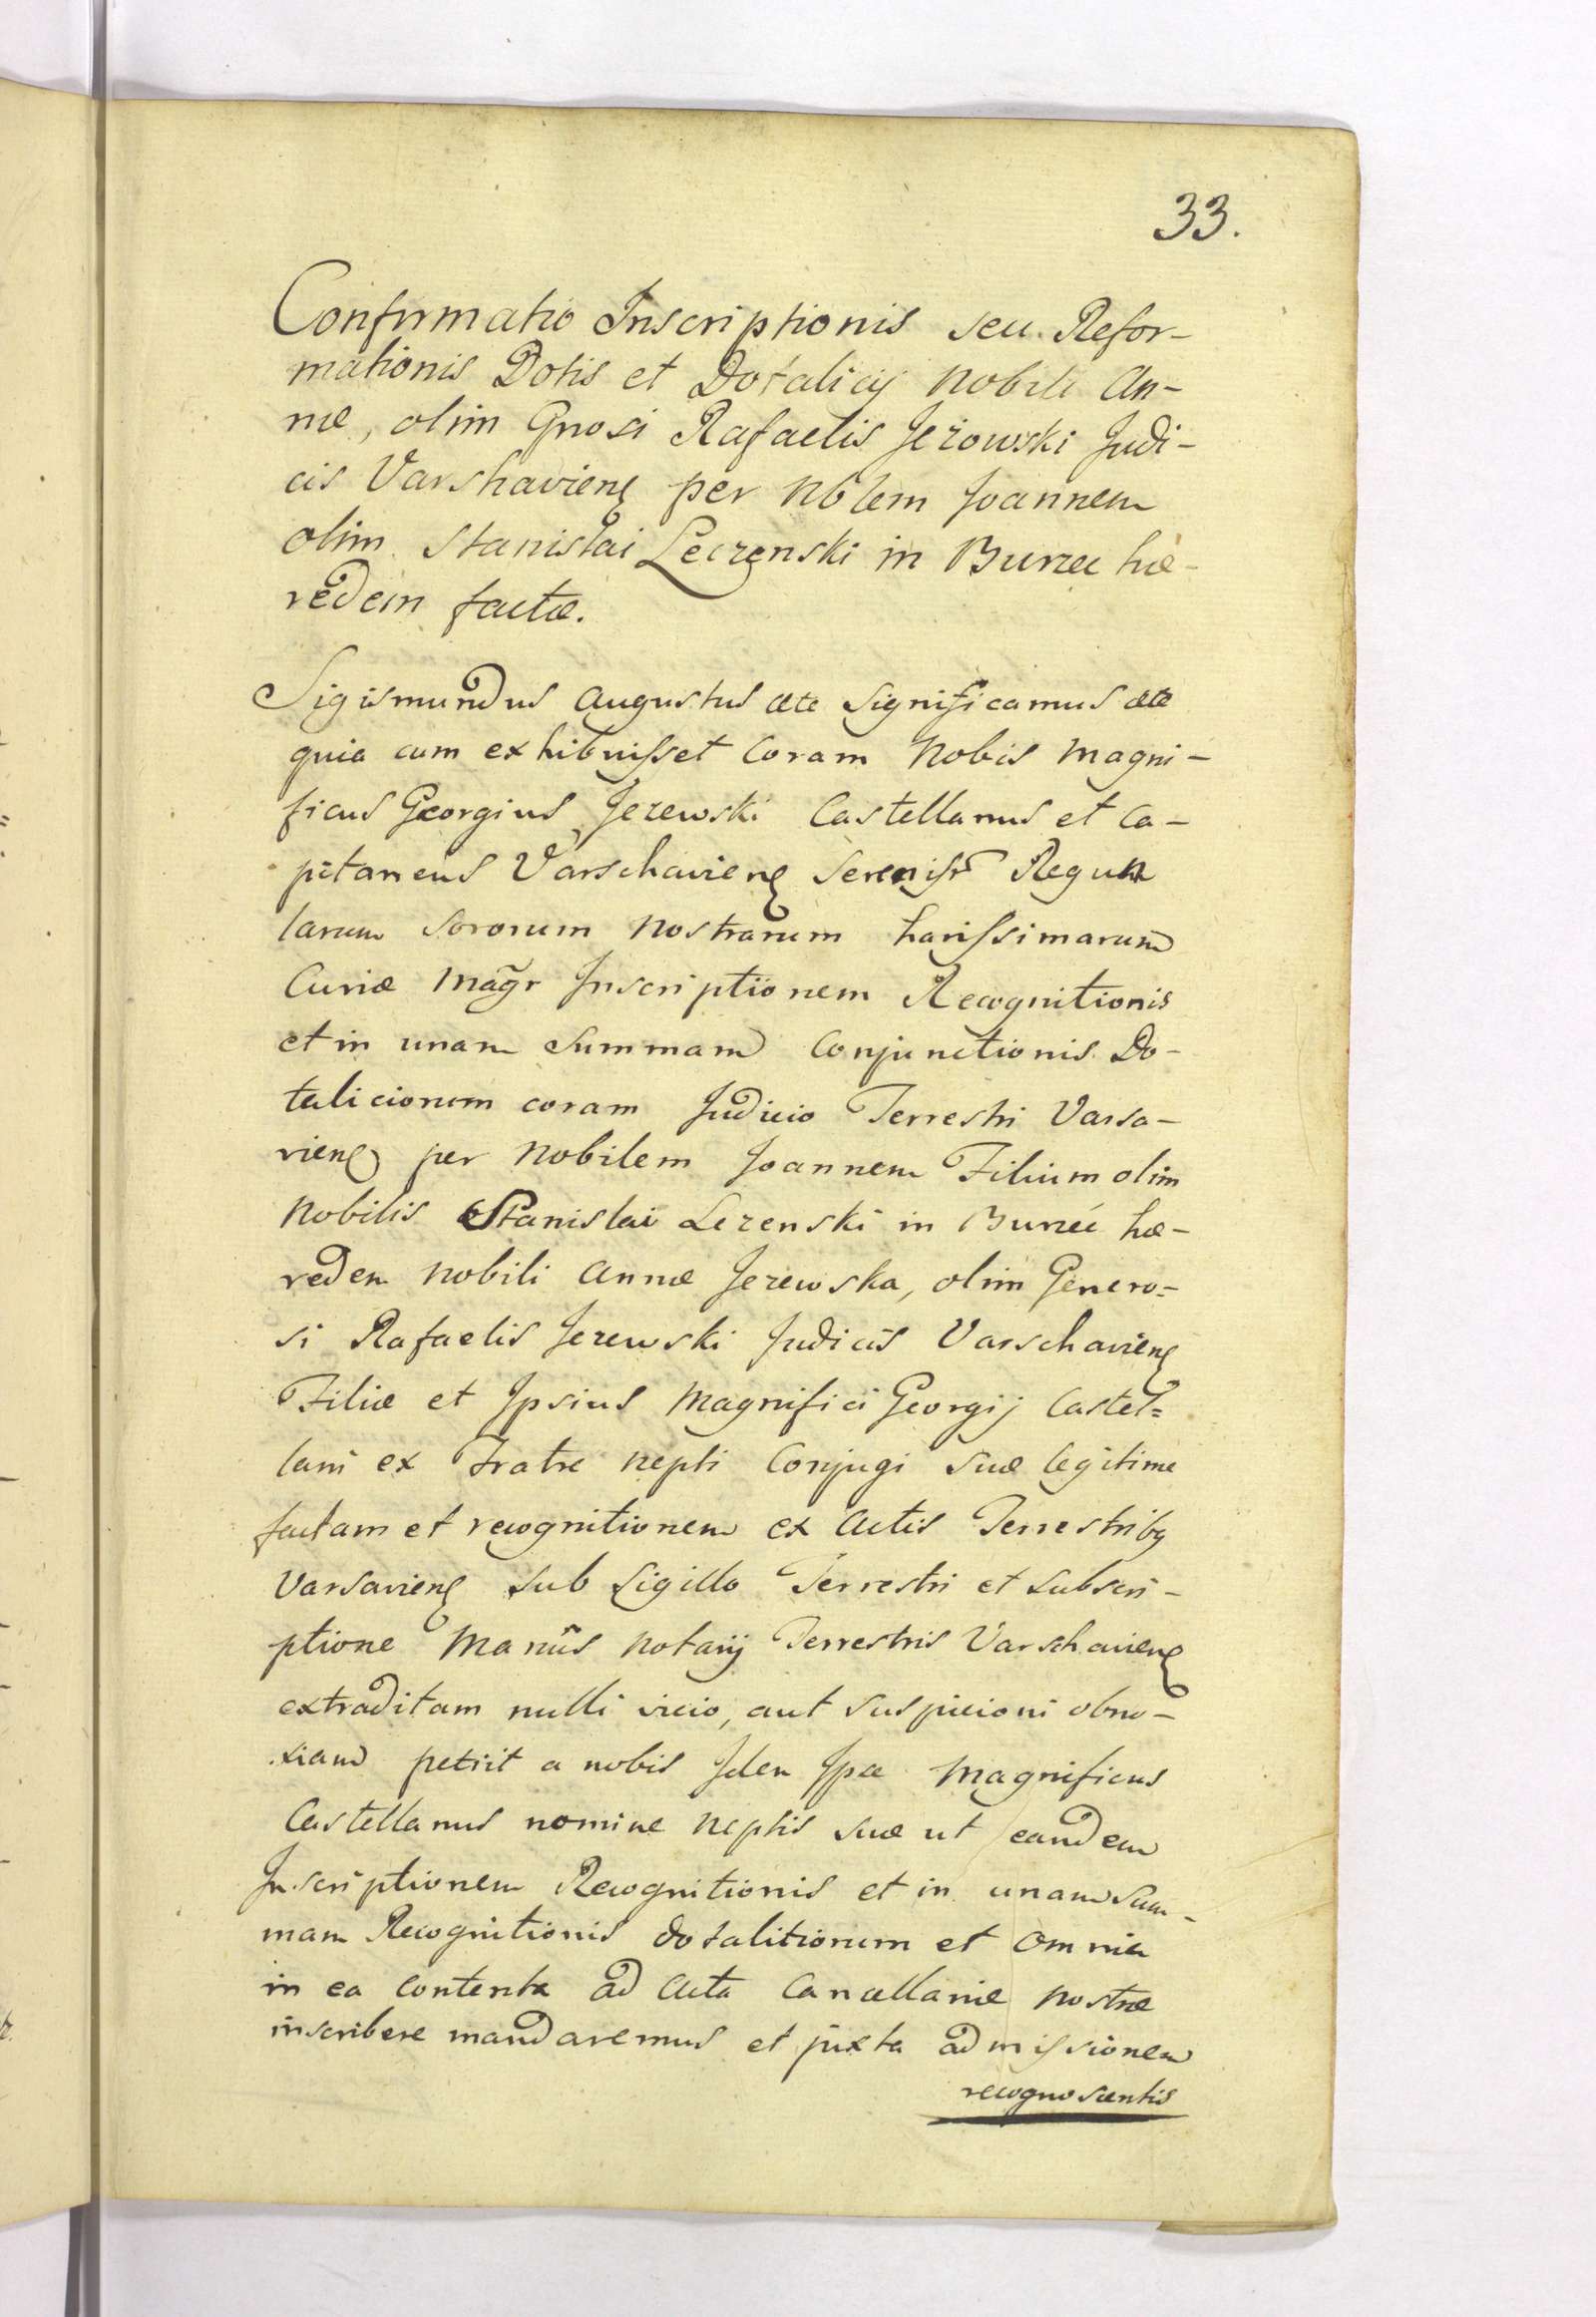 33.
Confirmatio Inscriptionis seu Refor-
mationis Dotis et Dotalicij Nobili An-
næ, olim Gnosi Rafaelis Jeżowski Judi-
cis Varshavien per Nblem Joannem
olim Stanislai Leczenski in Burzec hæ-
redem factæ.
Sigismundus Augustus etc significamus etc
quia cum exhibuisset Coram Nobis Magni-
ficus Georgius Jezewski Castellanus et Ca-
pitaneus Varschavien Sereniss Regum
larum Sororum Nostrarum harissimarum
Curiæ Magr Inscriptionem Recognitionis
et in unam Summam Conjunctionis Do-
taliciorum coram Judicio Terrestri Varsa-
vien per Nobilem Joannem Filium olim
Nobilis Stanislai Lezenski in Burzec hæ-
redem Nobili Annæ Jezewska, olim Genero=
si Rafaelis Jezewski Judicis Varschavien
Filiæ et Ipsius Magnifici Georgij Castel=
lani ex Fratre nepti Conjugi suæ legitime
factam et recognitionem ex Actis Terrestribq
Varsavien sub Sigillo Terrestri et Subscri-
ptione Manus Notarij Terrestris Varschavien
extraditam nulli vicio, aut suspicioni obno-
xiam petiit a nobis Idem Ipse Magnificus
Castellanus nomine Neptis suæ ut eandem
Inscriptionem Recognitionis et in unam Sum-
mam Recognitionis dotalitiorum et Omnia
in ea Contenta ad Acta Cancellariæ Nostræ
inscribere mandaremus et juxta admissionem
recognoscentis